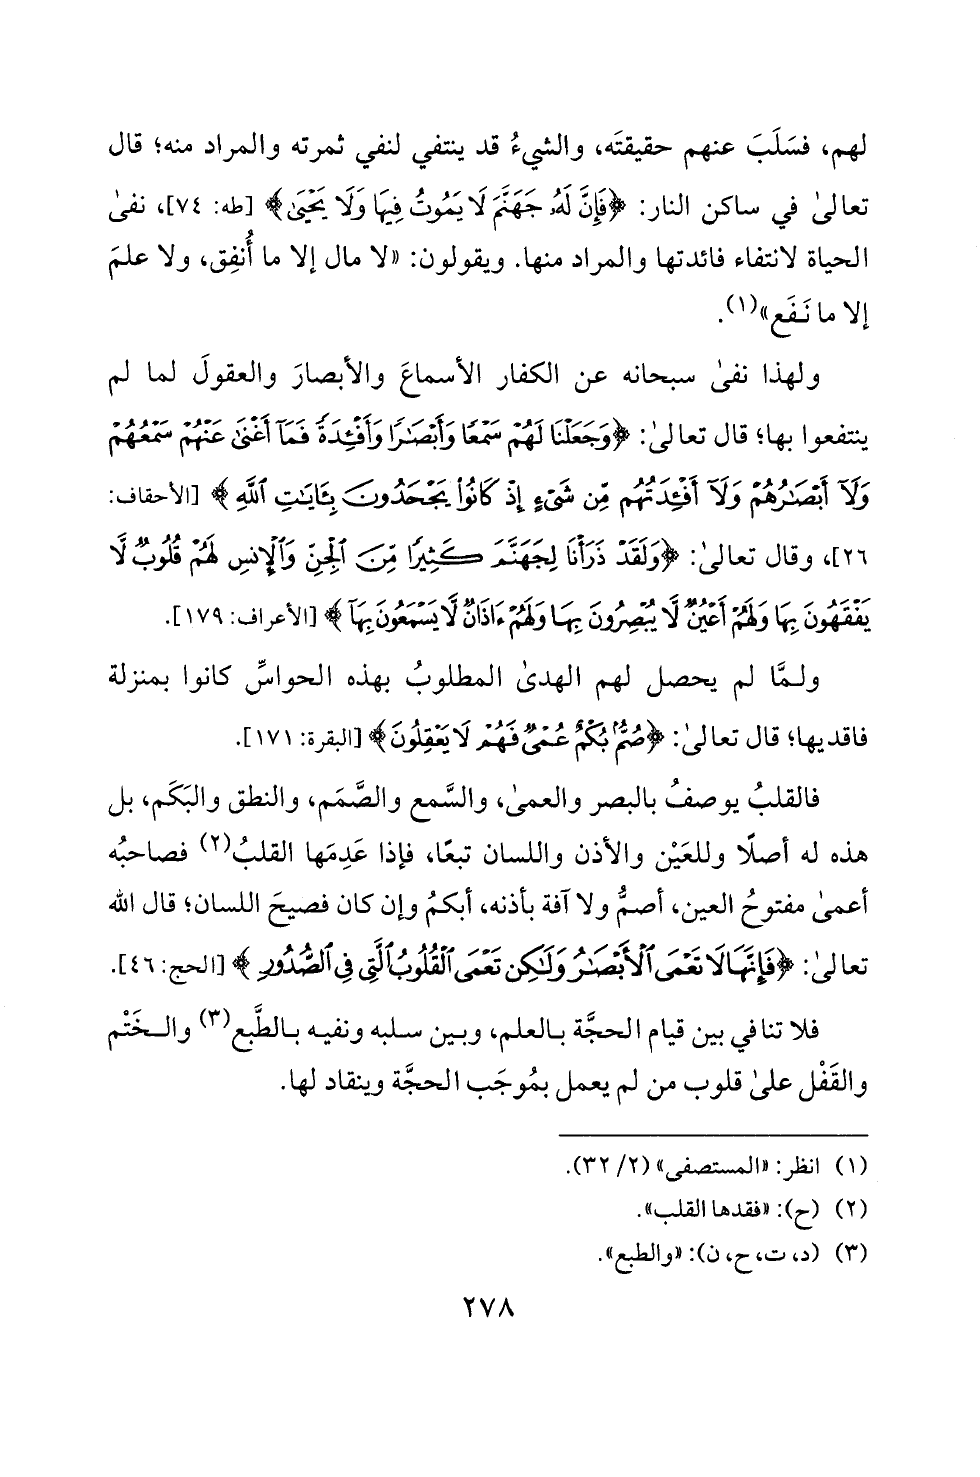 لهم، فسَلَبَ عنهم حقيقتَه، والشيءُ قد ينتفي لنفي ثمرته والمراد منه؛ قال
تعالىٰ في ساكن النار: ﴿فَإِنَّ لَهُۥ جَهَنَّمَ لَا يَمُوتُ فِيهَا وَلَا يَحْيَىٰ﴾ [طه: ٧٤]، نفىٰ
الحياة لانتفاء فائدتها والمراد منها. ويقولون: «لا مال إلا ما أُنفِق، ولا علمَ
إلا ما نَفَع»(١).
ولهذا نفىٰ سبحانه عن الكفار الأسماعَ والأبصارَ والعقولَ لما لم
ينتفعوا بها؛ قال تعالىٰ: ﴿وَجَعَلْنَا لَهُمْ سَمْعًا وَأَبْصَٰرًا وَأَفْـِٔدَةً فَمَآ أَغْنَىٰ عَنْهُمْ سَمْعُهُمْ
وَلَآ أَبْصَٰرُهُمْ وَلَآ أَفْـِٔدَتُهُم مِّن شَىْءٍ إِذْ كَانُوا۟ يَجْحَدُونَ بِـَٔايَٰتِ ٱللَّهِ﴾ [الأحقاف:
٢٦]، وقال تعالىٰ: ﴿وَلَقَدْ ذَرَأْنَا لِجَهَنَّمَ كَثِيرًا مِّنَ ٱلْجِنِّ وَٱلْإِنسِ لَهُمْ قُلُوبٌ لَّا
يَفْقَهُونَ بِهَا وَلَهُمْ أَعْيُنٌ لَّا يُبْصِرُونَ بِهَا وَلَهُمْ ءَاذَانٌ لَّا يَسْمَعُونَ بِهَآ﴾ [الأعراف: ١٧٩].
ولـمَّا لم يحصل لهم الهدىٰ المطلوبُ بهذه الحواسِّ كانوا بمنزلة
فاقديها؛ قال تعالىٰ: ﴿صُمٌّۢ بُكْمٌ عُمْىٌ فَهُمْ لَا يَعْقِلُونَ﴾ [البقرة: ١٧١].
فالقلبُ يوصفُ بالبصر والعمىٰ، والسَّمع والصَّمَم، والنطق والبَكَم، بل
هذه له أصلًا وللعَيْن والأذن واللسان تبعًا، فإذا عَدِمَها القلبُ(٢) فصاحبُه
أعمىٰ مفتوحُ العين، أصمُّ ولا آفة بأذنه، أبكمُ وإن كان فصيحَ اللسان؛ قال الله
تعالىٰ: ﴿فَإِنَّهَا لَا تَعْمَى ٱلْأَبْصَٰرُ وَلَٰكِن تَعْمَى ٱلْقُلُوبُ ٱلَّتِى فِى ٱلصُّدُورِ﴾ [الحج: ٤٦].
فلا تنافي بين قيام الحجَّة بالعلم، وبين سلبه ونفيه بالطَّبع(٣) والـخَتْم
والقَفْل علىٰ قلوب من لم يعمل بمُوجَب الحجَّة وينقاد لها.
(١) انظر: «المستصفى» (٢/ ٣٢).
(٢) (ح): «فقدها القلب».
(٣) (د، ت، ح، ن): «والطبع».
٢٧٨